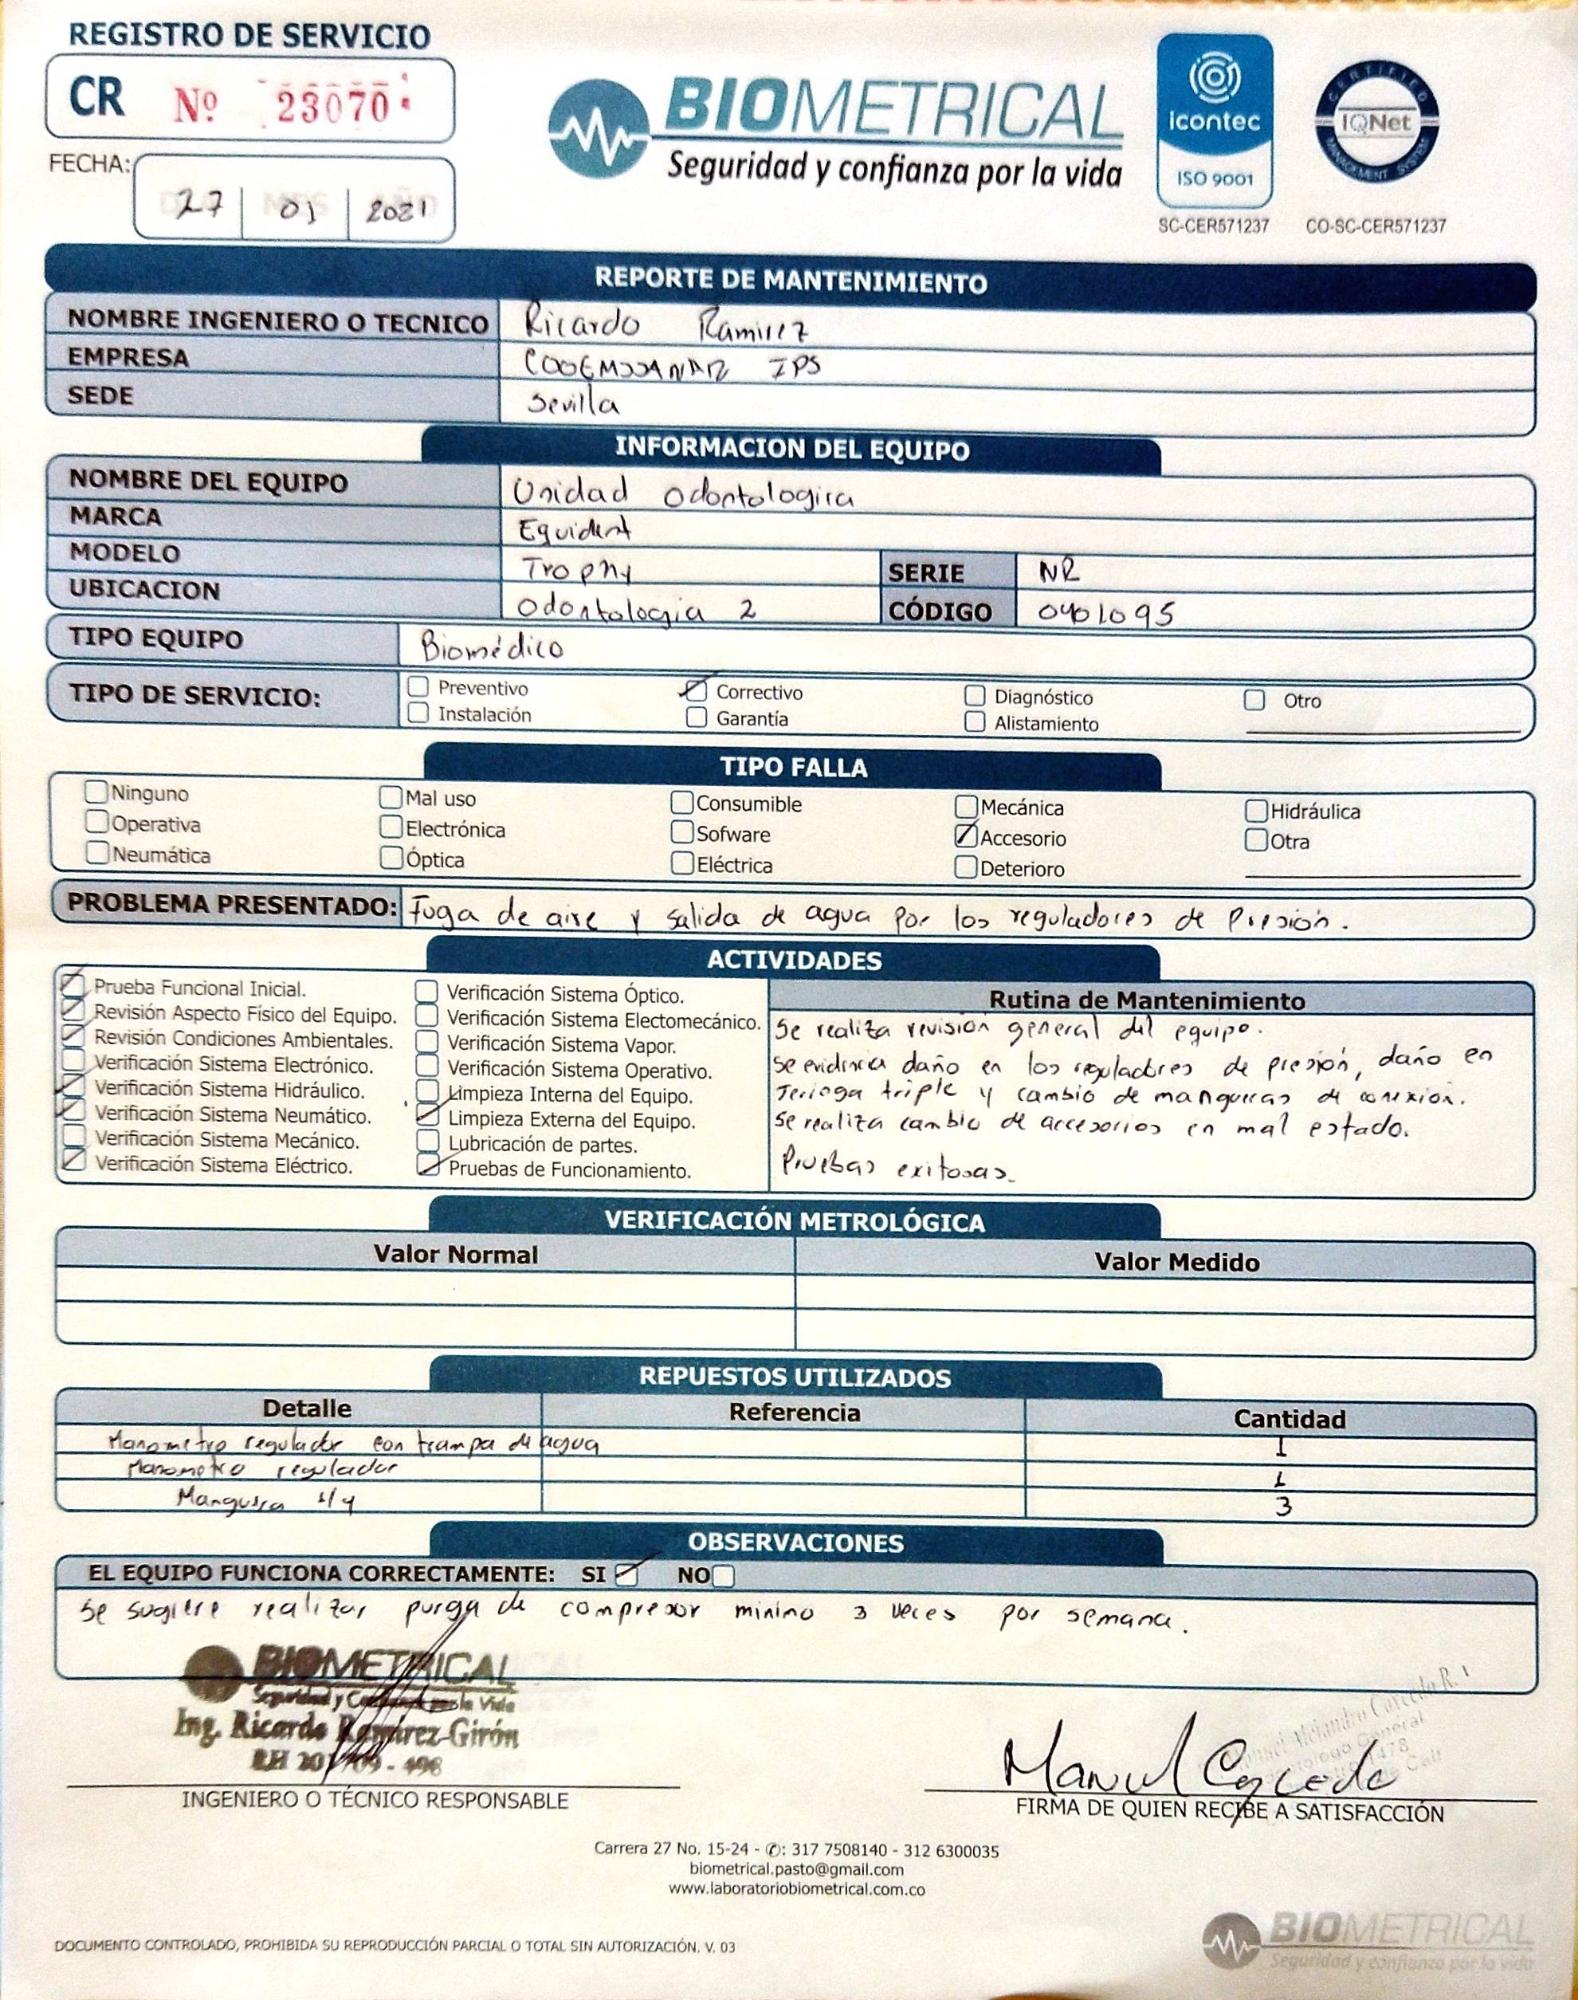 REGISTRO DE SERVICIO
CR Nº 23070
FECHA: 27 01 2021
BIOMETRICAL
Seguridad y confianza por la vida
icontec
ISO 9001
SC-CER571237
CERTIFIED
IQNet
MANAGEMENT SYSTEM
CO-SC-CER571237
REPORTE DE MANTENIMIENTO
NOMBRE INGENIERO O TECNICO Ricardo Ramirez
EMPRESA COOEMSSANAR IPS
SEDE Sevilla
INFORMACION DEL EQUIPO
NOMBRE DEL EQUIPO Unidad Odontologica
MARCA Equident
MODELO Trophy SERIE NR
UBICACION Odontologia 2 CÓDIGO 0401095
TIPO EQUIPO Biomédico
TIPO DE SERVICIO: Preventivo Correctivo Diagnóstico Otro
Instalación Garantía Alistamiento
TIPO FALLA
Ninguno Mal uso Consumible Mecánica Hidráulica
Operativa Electrónica Sofware Accesorio Otra
Neumática Óptica Eléctrica Deterioro
PROBLEMA PRESENTADO: Fuga de aire y salida de agua por los reguladores de Presión.
ACTIVIDADES
Prueba Funcional Inicial.
Revisión Aspecto Físico del Equipo.
Revisión Condiciones Ambientales.
Verificación Sistema Electrónico.
Verificación Sistema Hidráulico.
Verificación Sistema Neumático.
Verificación Sistema Mecánico.
Verificación Sistema Eléctrico.
Verificación Sistema Óptico.
Verificación Sistema Electomecánico.
Verificación Sistema Vapor.
Verificación Sistema Operativo.
Limpieza Interna del Equipo.
Limpieza Externa del Equipo.
Lubricación de partes.
Pruebas de Funcionamiento.
Rutina de Mantenimiento
Se realiza revisión general del equipo.
Se evidencia daño en los reguladores de presión, daño en
Jeringa triple y cambio de mangueras de conexion.
Se realiza cambio de accesorios en mal estado.
Pruebas exitosas.
VERIFICACIÓN METROLÓGICA
Valor Normal Valor Medido
REPUESTOS UTILIZADOS
Detalle Referencia Cantidad
Manometro regulador con trampa de agua 1
Manometro regulador 1
Manguera 1/4 3
OBSERVACIONES
EL EQUIPO FUNCIONA CORRECTAMENTE: SI NO
Se sugiere realizar purga de compresor minimo 3 veces por semana.
BIOMETRICAL
Seguridad y Confianza por la Vida
Ing. Ricardo Ramírez Girón
INGENIERO O TÉCNICO RESPONSABLE
Manuel Caycedo
FIRMA DE QUIEN RECIBE A SATISFACCIÓN
Carrera 27 No. 15-24 - ✆: 317 7508140 - 312 6300035
biometrical.pasto@gmail.com
www.laboratoriobiometrical.com.co
DOCUMENTO CONTROLADO, PROHIBIDA SU REPRODUCCIÓN PARCIAL O TOTAL SIN AUTORIZACIÓN. V. 03
BIOMETRICAL
Seguridad y confianza por la vida